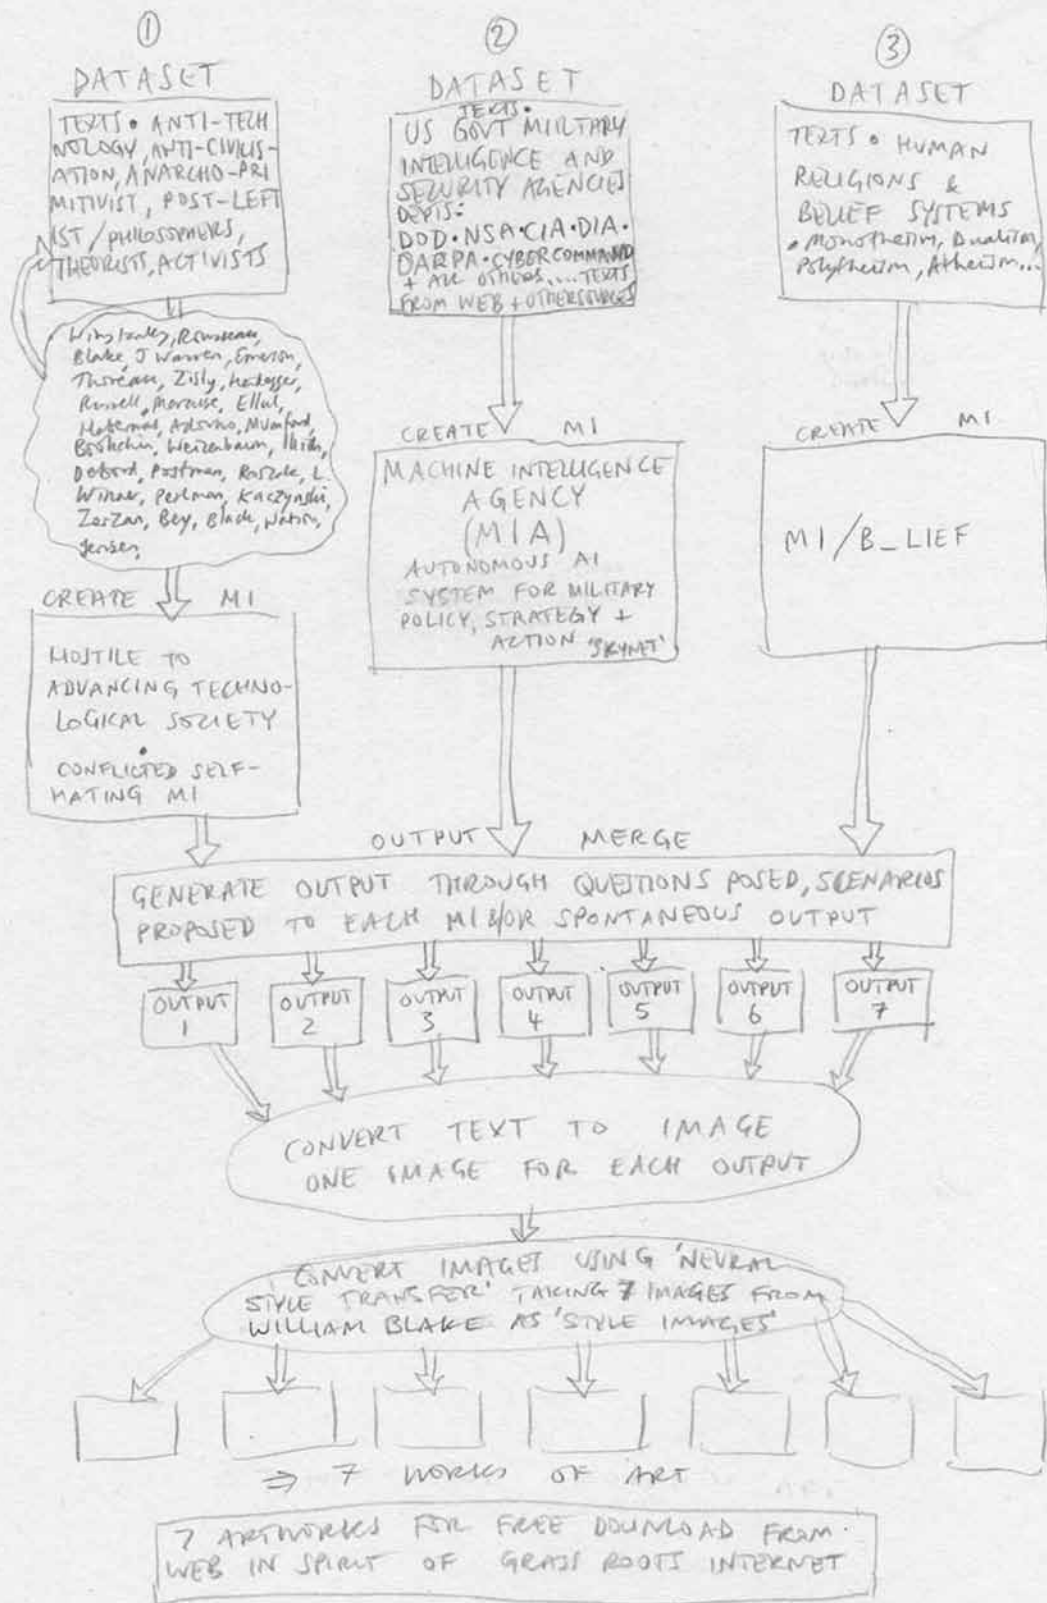 ①
DATASET
TEXTS • ANTI-TECH
NOLOGY, ANTI-CIVILIS-
ATION, ANARCHO-PRI
MITIVIST, POST-LEFT
IST/PHILOSOPHERS,
THEORISTS, ACTIVISTS
Winstanley, Rousseau,
Blake, J Warren, Emerson,
Thoreau, Zisly, Heidegger,
Russell, Marcuse, Ellul,
Adorno, Mumford,
Bookchin, Weizenbaum, Illich,
Debord, Postman, Roszak, L.
Winner, Perlman, Kaczynski,
Zerzan, Bey, Black, Watson,
Jensen,
CREATE MI
HOSTILE TO
ADVANCING TECHNO-
LOGICAL SOCIETY
•
CONFLICTED SELF-
HATING MI
②
DATASET
TEXTS •
US GOVT MILITARY
INTELLIGENCE AND
SECURITY AGENCIES
DEPTS:
DOD • NSA • CIA • DIA •
DARPA • CYBERCOMMAND
+ ALL OTHERS.... TEXTS
FROM WEB + OTHERSOURCES
CREATE MI
MACHINE INTELLIGENCE
AGENCY
(MIA)
AUTONOMOUS AI
SYSTEM FOR MILITARY
POLICY, STRATEGY +
ACTION 'SKYNET'
③
DATASET
TEXTS • HUMAN
RELIGIONS &
BELIEF SYSTEMS
• Monotheism, Dualism,
Polytheism, Atheism...
CREATE MI
MI/B_LIEF
OUTPUT MERGE
GENERATE OUTPUT THROUGH QUESTIONS POSED, SCENARIOS
PROPOSED TO EACH MI &/OR SPONTANEOUS OUTPUT
OUTPUT
1
OUTPUT
2
OUTPUT
3
OUTPUT
4
OUTPUT
5
OUTPUT
6
OUTPUT
7
CONVERT TEXT TO IMAGE
ONE IMAGE FOR EACH OUTPUT
CONVERT IMAGES USING 'NEURAL
STYLE TRANSFER' TAKING 7 IMAGES FROM
WILLIAM BLAKE AS 'STYLE IMAGES'
⇒ 7 WORKS OF ART
7 ARTWORKS FOR FREE DOWNLOAD FROM
WEB IN SPIRIT OF GRASS ROOTS INTERNET